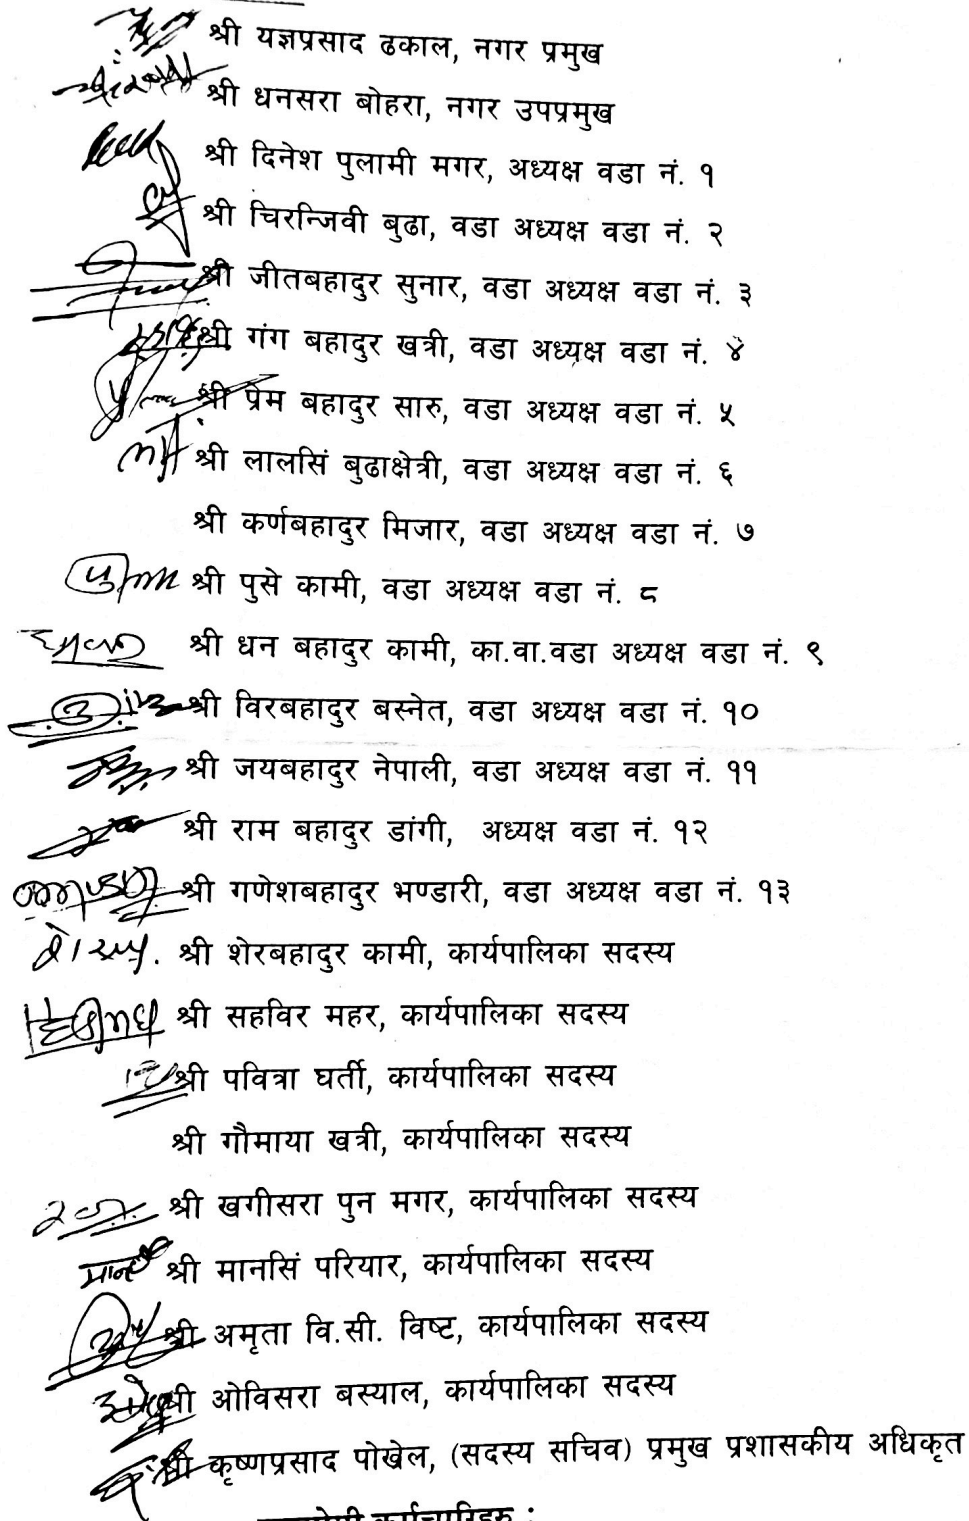 श्री यज्ञप्रसाद ढकाल, नगर प्रमुख
श्री धनसरा बोहरा, नगर उपप्रमुख
श्री दिनेश पुलामी मगर, अध्यक्ष वडा नं. १
श्री चिरन्जिवी बुढा, वडा अध्यक्ष वडा नं. २
श्री जीतबहादुर सुनार, वडा अध्यक्ष वडा नं. ३
श्री गंग बहादुर खत्री, वडा अध्यक्ष वडा नं. ४
श्री प्रेम बहादुर सारु, वडा अध्यक्ष वडा नं. ५
श्री लालसिं बुढाक्षेत्री, वडा अध्यक्ष वडा नं. ६
श्री कर्णबहादुर मिजार, वडा अध्यक्ष वडा नं. ७
श्री पुसे कामी, वडा अध्यक्ष वडा नं. ८
श्री धन बहादुर कामी, का.वा.वडा अध्यक्ष वडा नं. ९
श्री विरबहादुर बस्नेत, वडा अध्यक्ष वडा नं. १०
श्री जयबहादुर नेपाली, वडा अध्यक्ष वडा नं. ११
श्री राम बहादुर डांगी, अध्यक्ष वडा नं. १२
श्री गणेशबहादुर भण्डारी, वडा अध्यक्ष वडा नं. १३
श्री शेरबहादुर कामी, कार्यपालिका सदस्य
श्री सहविर महर, कार्यपालिका सदस्य
श्री पवित्रा घर्ती, कार्यपालिका सदस्य
श्री गौमाया खत्री, कार्यपालिका सदस्य
श्री खगीसरा पुन मगर, कार्यपालिका सदस्य
श्री मानसिं परियार, कार्यपालिका सदस्य
श्री अमृता वि.सी. विष्ट, कार्यपालिका सदस्य
श्री ओविसरा बस्याल, कार्यपालिका सदस्य
श्री कृष्णप्रसाद पोखेल, (सदस्य सचिव) प्रमुख प्रशासकीय अधिकृत